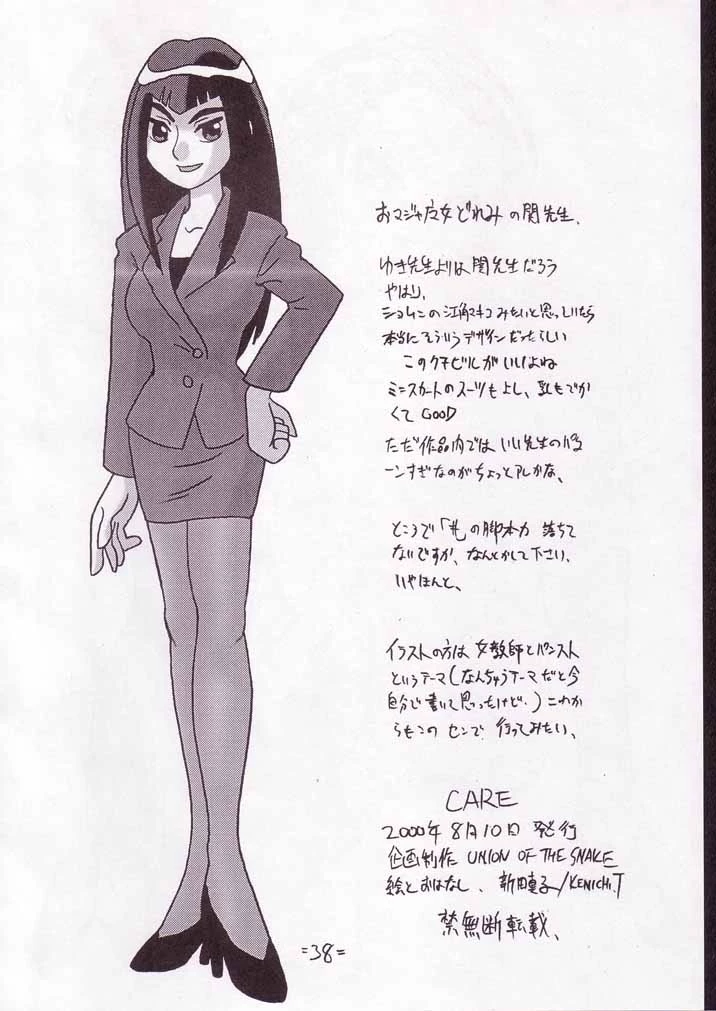 おマジャ魔女どれみの関先生.
ゆき先生よりは関先生だろう
やはり、
ショムニの江角マキコみたいと思っていたら
本当にそういうデザインだったらしい
このクチビルがいいよね
ミニスカートのスーツもよし、乳もでか
くてGOOD
ただ作品内ではいい先生の
ーンすぎなのがちょっとアレかな、
ところで「#」の脚本力 落ちて
ないですか、なんとかして下さい.
いやほんと、
イラストの方は女教師とパンスト
というテーマ(なんちゅうテーマだと今
自分で書いて思ったけど・)これか
らもこのセンで行ってみたい、
CARE
2000年8月10日 発行
企画制作 UNION OF THE SNAKE
絵とおはなし、新田真子/KENICHI.T
禁無断転載、
=38=